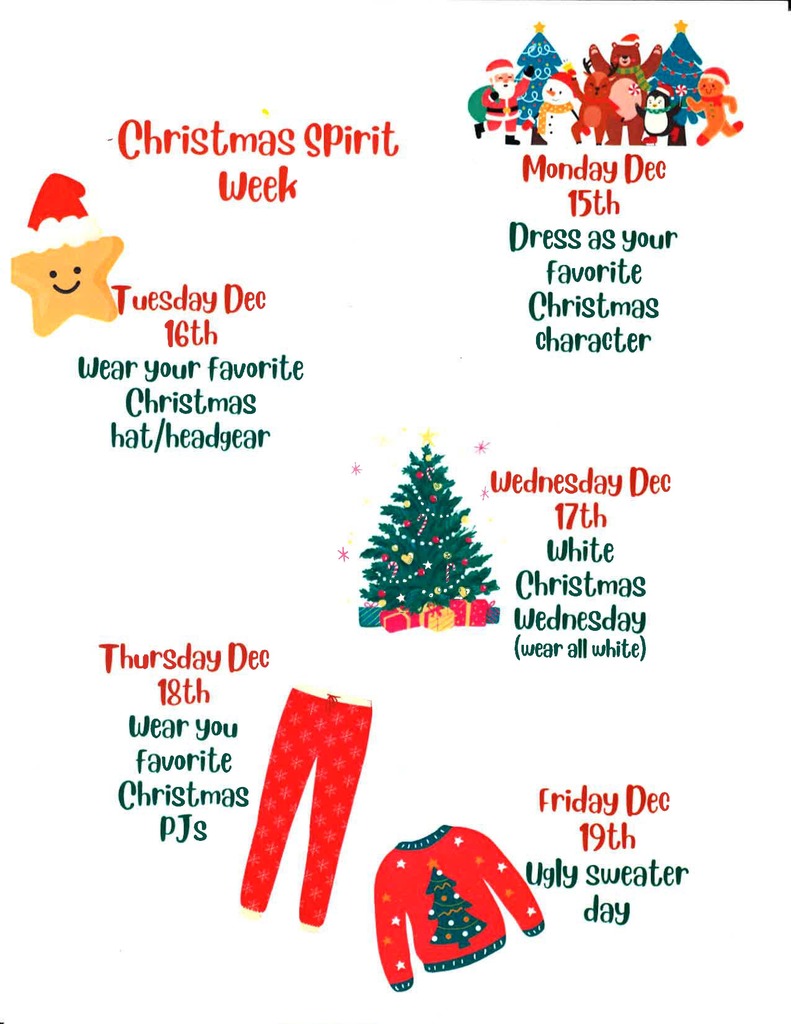 Christmas Spirit
Week
Monday Dec
15th
Dress as your
favorite
Christmas
character
Tuesday Dec
16th
Wear your favorite
Christmas
hat/headgear
Wednesday Dec
17th
White
Christmas
Wednesday
(wear all white)
Thursday Dec
18th
Wear you
favorite
Christmas
PJs
Friday Dec
19th
Ugly sweater
day